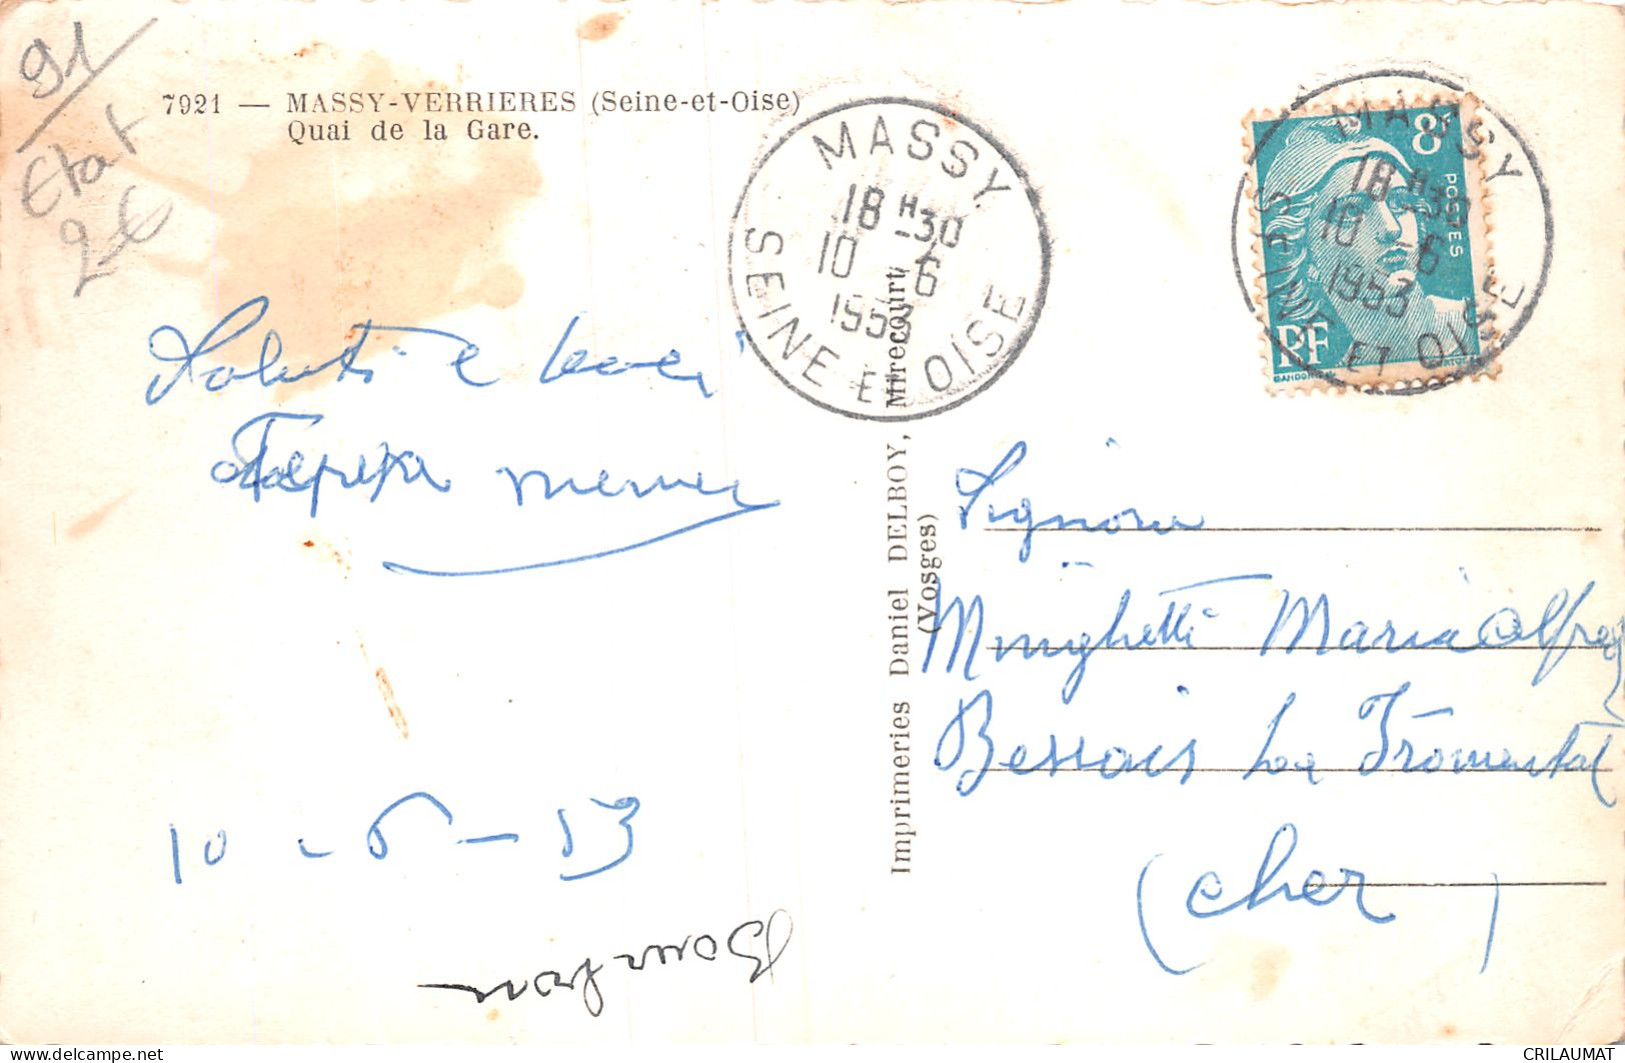 91
Etat
2€
7921 — MASSY-VERRIERES (Seine-et-Oise)
Quai de la Gare.
MASSY
18 H 30
10 - 6
1953
SEINE ET OISE
8F
POSTES
RF
GANDON
MASSY
18 H 30
10 - 6
1953
SEINE ET OISE
Saluti e baci
10 - 6 - 53
Imprimeries Daniel DELBOY, Mirecourt
(Vosges)
Signora
Minighetti Maria
Bessais Le Fromental
(Cher)
CRILAUMAT
Delcampe.net